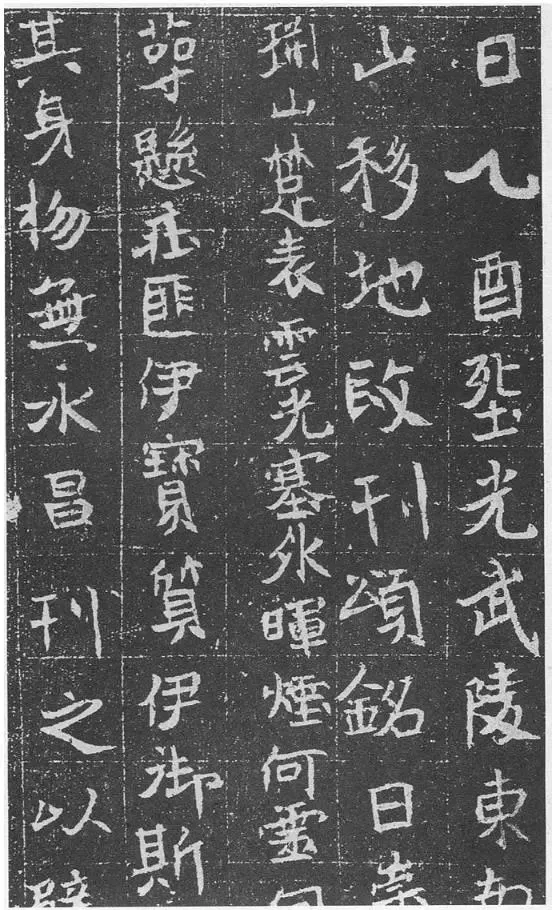 日乙酉塟光武陵東南
山移地改刊頌銘曰崇
山楚表雲光塞外暉煙何靈
懸匪伊寶質伊御斯
其身物無永昌刊之以